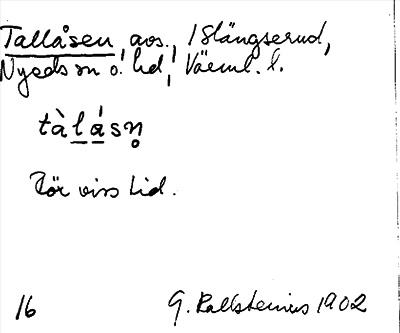 Tallåsen, avs., 1 Slängserud,
Nyeds sn o. hd, Värml. l.
tàlá̊sn̥
För viss tid.
16 G. Kallstenius 1902